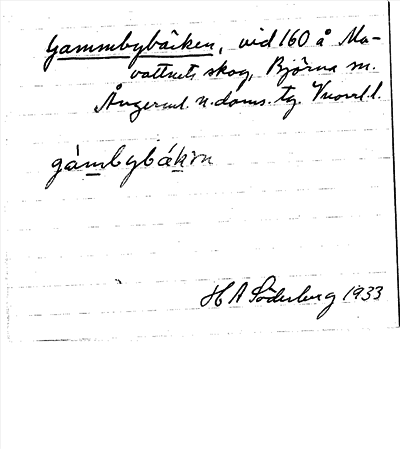 Gammbybäcken, vid 160 å Ma-
vattnets skog, Björna sn.
Ångerml. n. doms. tg. Vnorrl. l.
gámbybákɷn
H A Söderberg 1933